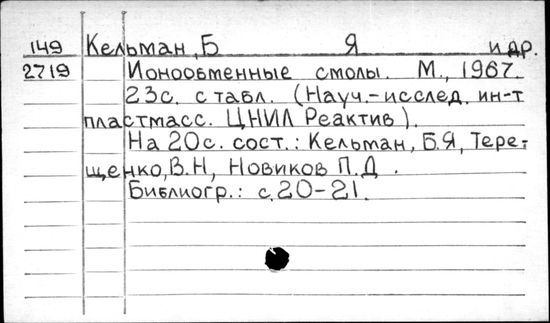 149 Кельман, Б Я и др.
2719 Ионообменные смолы. М., 1967.
23с. с табл. (Науч.-исслед. ин-т
пластмасс. ЦНИЛ Реактив).
На 20с. сост.: Кельман, Б.Я, Тере-
щенко, В.Н, Новиков П.Д.
Библиогр.: с.20-21.